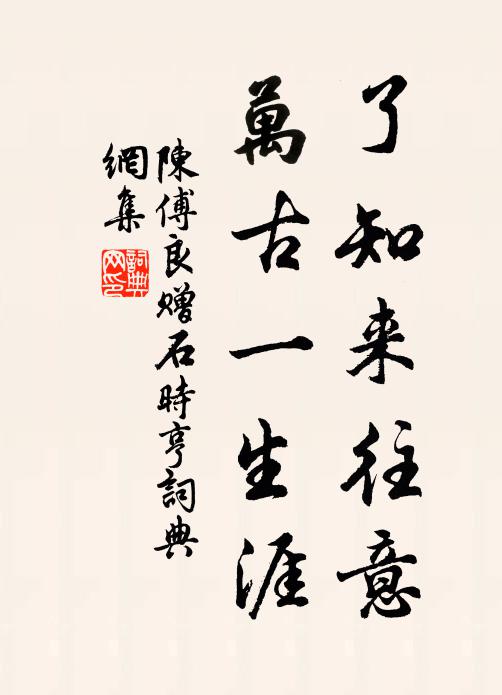 了知来往意
萬古一生涯
陳傅良赠石時亨詞典
網集
詞典网印